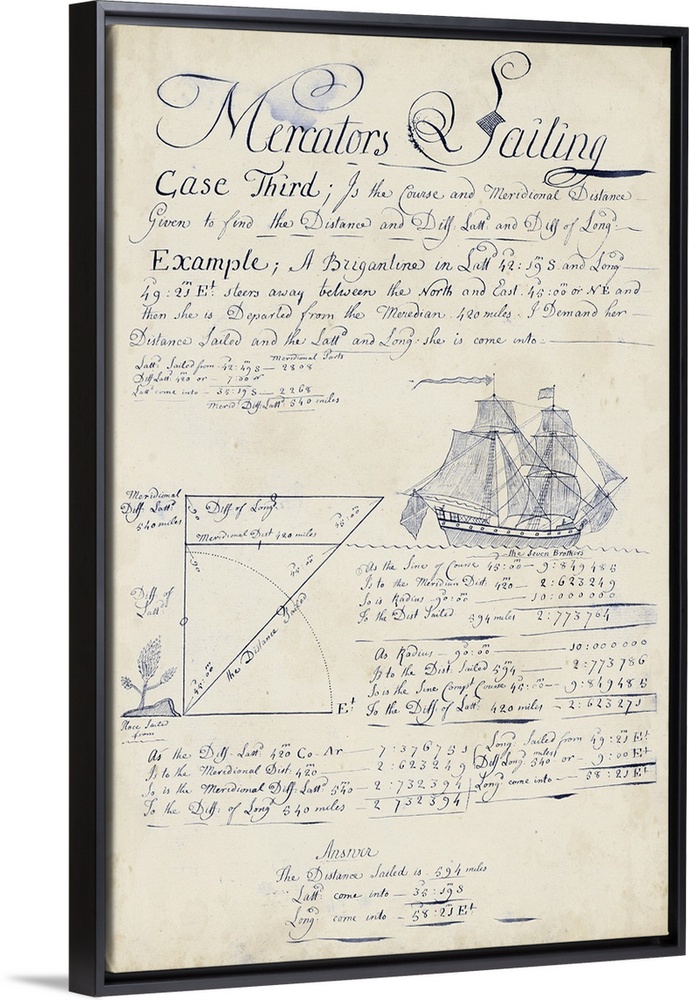 Mercators Sailing
Case Third; Is the Course and Meridional Distance
Given to find the Distance and Diff: Lattd and Diff of Longd:
Example; A Brigantine in Lattd 42:19 S and Longd
49:21 Et steers away between the North and East 45:00 or NE and
then she is Departed from the Meredian 420 miles. I Demand her
Distance Sailed and the Lattd and Longd she is come into
Meridional Parts
Lattd Sailed from 42:49 S — 2808
Diff Lattd 420 or — 7:00
Lattd come into — 35:19 S — 2268
Merid Diff Lattd 540 miles
Meridional
Diff: Lattd
540 miles
Diff of Longd
45:00
Meridional Dist 420 miles
90
45:00
Diff of
Lattd
the Distance Sailed
45:00
Et
Place Sailed
from
The Seven Brothers
As the Sine of Course 45:00 — 9:849485
Is to the Meridian Dist: 420 — 2:623249
So is Radius — 90:00 — 10:000000
To the Dist Sailed 594 miles 2:773764
As Radius — 90:00 — 10:000000
Is to the Dist: Sailed 594 — 2:773786
So is the Sine Compt Course 45:00 — 9:849485
To the Diff of Lattd 420 miles — 2:623271
As the Diff: Lattd 420 Co-Ar — 7:376751
Is to the Meridional Dist: 420 — 2:623249
So is the Meridional Diff: Lattd 540 — 2:732394
To the Diff: of Longd 540 miles — 2 732394
Longd Sailed from 49:21 Et
Diff Longd 540 miles or — 9:00 Et
Longd come into — 58:21 Et
Answer
The Distance Sailed is 594 miles
Lattd come into — 35:19 S
Longd come into — 58:21 Et